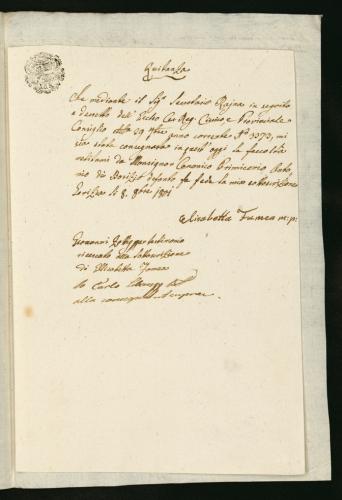 Quitanza
Che mediante il Sigr Secretario Rajna in seguito
a Decretto dell' Eccelso Ces: Reg: Civico, e Provinciale
Consiglio dto 29 7bre anno corrente No 3373, mi
sia stata consegnata in quest' oggi la facoltà
relitami da Monsignor Canonico Primicerio Anto,,
nio de Defonto fa fede la mia sottoscrizione
Gorizia li 8. 8bre 1801
Elisabetta Fumea m: p:
Giovanni testimonio
ricercato alla Sottoscrizione
di Elisabetta Fumea
Io Carlo
alla